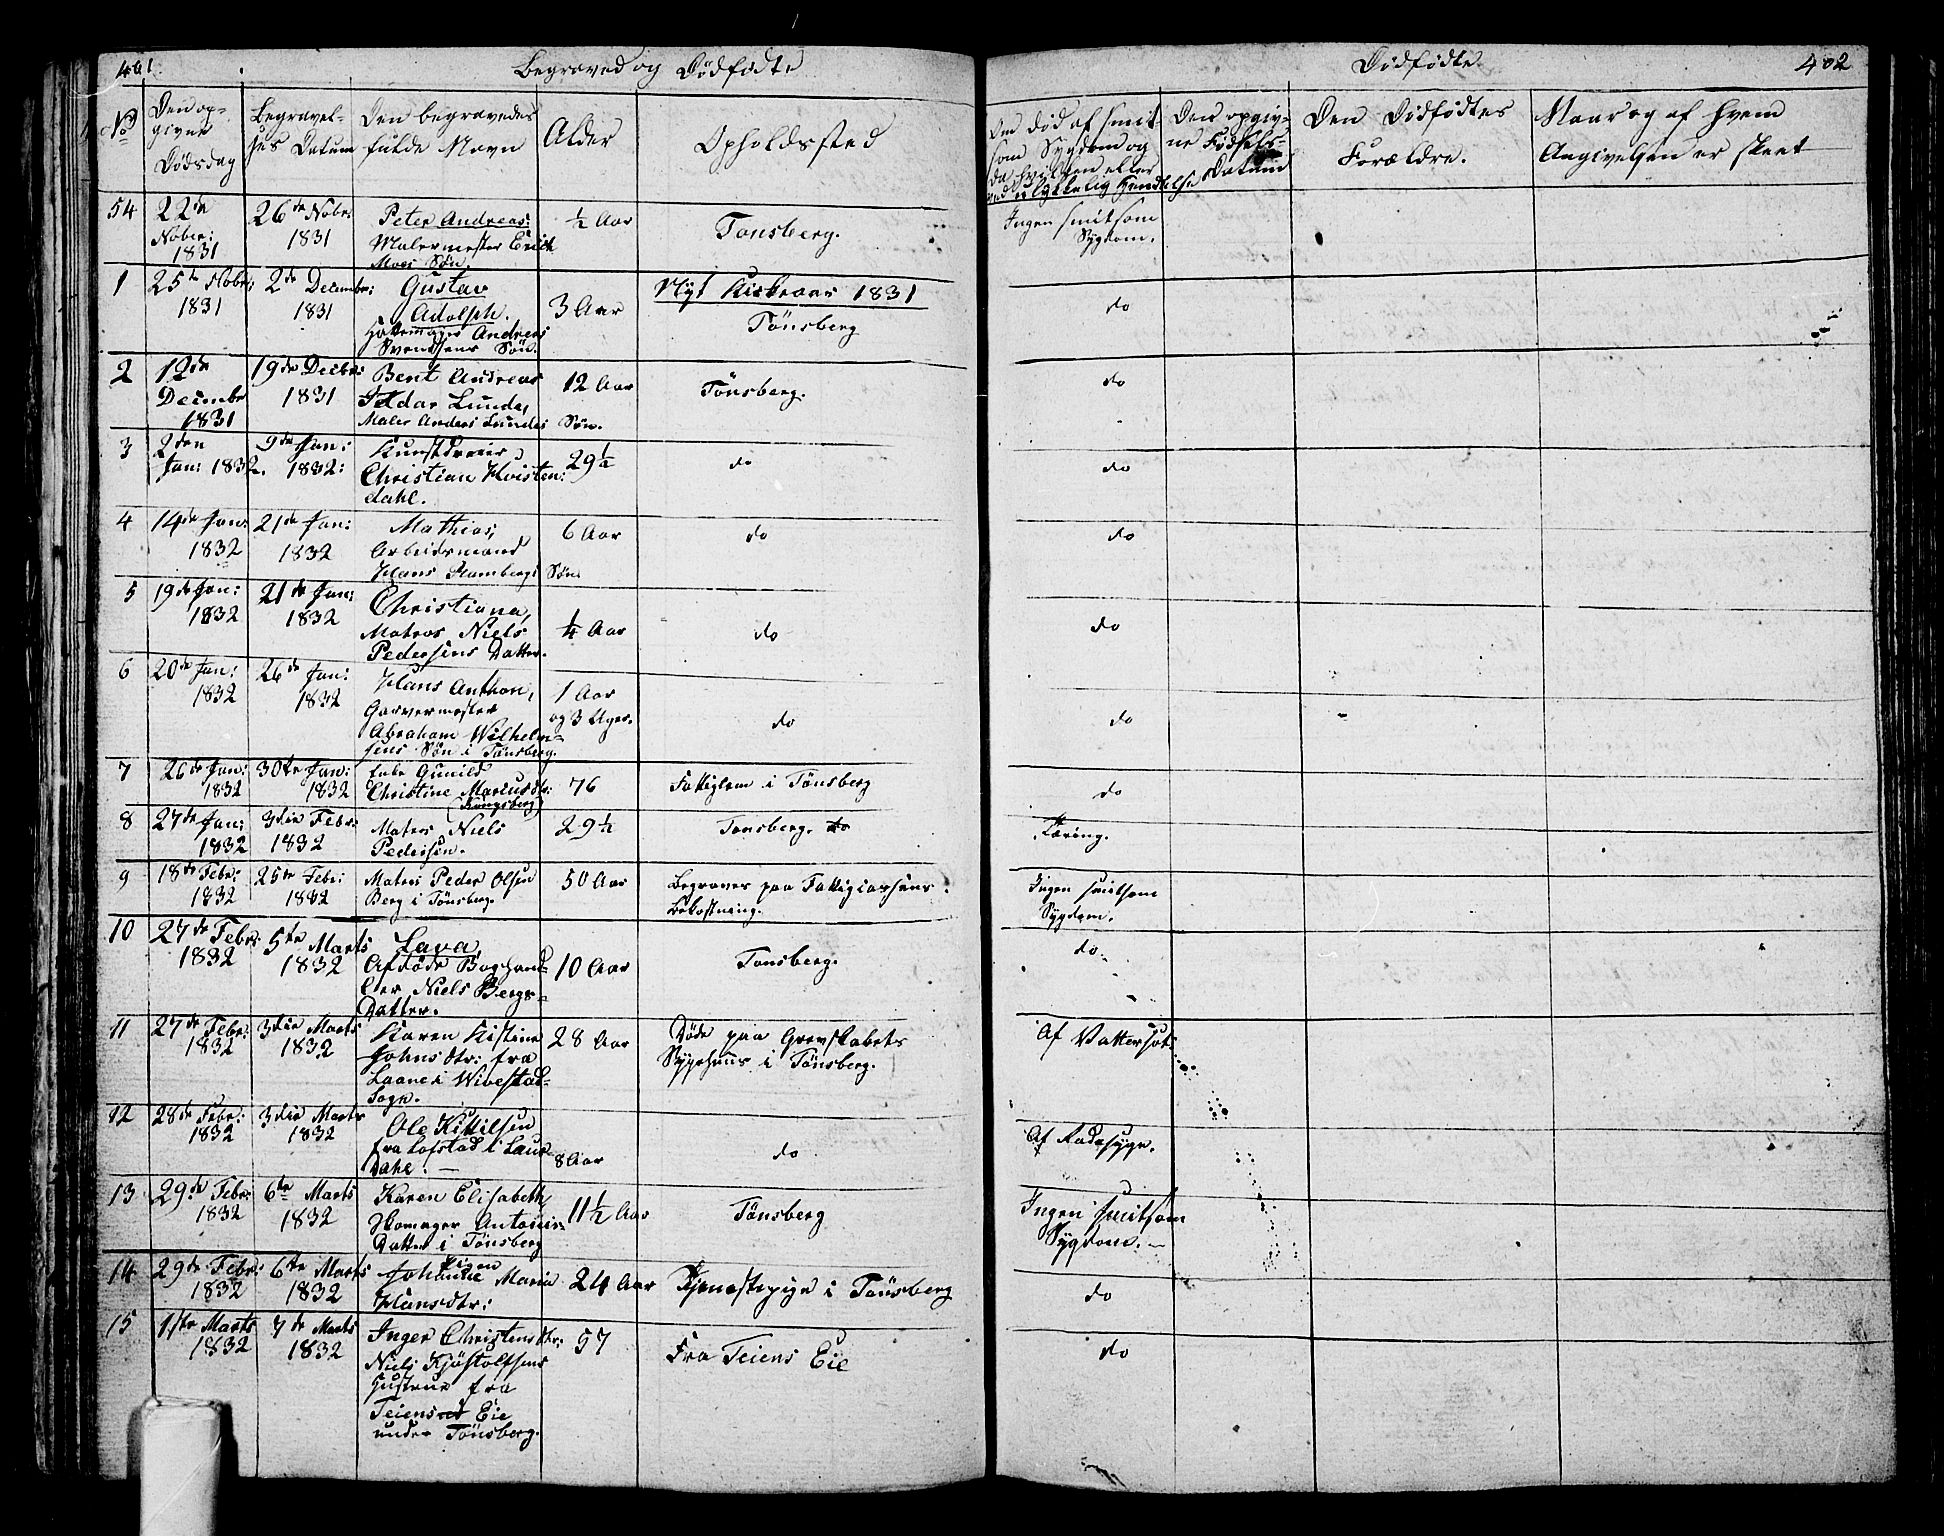 461.
Begraved og Dødfødte
No
Den op-
givne
Dødsdag
Begravel-
ses Datum
Den begravedes
fulde Navn
Alder
Opholdssted
54
22de
Nobr:
1831
26de Nobr:
1831
Peter Andreas:
Malermester Erich
Moes Søn.
½ Aar
Tonsberg.
1
25de Nobr:
1831
2de Decembr:
1831
Gustav
Adolph.
Andreas
Svendsens Søn.
3 Aar
Nyt Kirkeaar 1831
Tönsberg
2
12de
Decembr
1831
19de Decbr:
1831
Bent Andreas
Lunde,
Maler Anders Lundes Søn.
12 Aar
Tönsberg.
3
2den
Jan: 1832.
9de Jan:
1832:
Kunstdreier
Christian Hvisten:
dahl.
29½
do
4
14de Jan:
1832
21de Jan:
1832
Mathias,
Arbeidsmand
Hans Søn.
6 Aar
do
5
19de Jan:
1832
21de Jan:
1832
Christiana,
Matros Niels
Pedersens Datter.
¼ Aar
do
6
20de Jan:
1832
26de Jan:
1832
Hans Anthon,
Garvermester
Abraham Wilhelm-
sens Søn i Tönsberg.
1 Aar
og 3 Uger.
do
7
26de Jan:
1832
30te Jan:
1832
Enke Gunild
Christine Marcusdtr:
(Kongsberg)
76
Fattiglem i Tönsberg
8
27de Jan:
1832
3die Febr:
1832
Matros Niels
Pedersen.
29½
Tonsberg.
9
18de Febr:
1832
25de Febr:
1832
Matros Peder Olsen
Berg i Tönsberg.
50 Aar
Begraves paa Fattigcassens
Bekostning.
10
27de Febr:
1832
5te Marts
1832
Lava,
Afdøde Boghand-
ler Niels Bergs-
Datter.
10 Aar
Tonsberg.
11
27de Febr:
1832
3die Marts
1832
Karen Kistine
Johnsdtr: fra
Laane i Wivestad-
Sogn.
28 Aar
Døde paa Grevskabets
Sygehuus i Tönsberg.
12
28de Febr:
1832
3die Marts
1832
Ole Kittilsen
fra Lofstad i Laur-
dahl. —
8 Aar
do
13
29de Febr:
1832
6te Marts
1832
Karen Elisabeth,
Skomager
Datter i Tönsberg
11½ Aar
Tönsberg
14
29de Febr:
1832
6te Marts
1832
Pigen
Johanne Maria
Hansdtr:
24 Aar
Tjenestepige i Tönsberg
15
1ste Marts
1832
7de Marts
1832
Inger Christensdtr:
Niels Kjöstolfsens
Hustrue fra
Teiens Eie
under Tönsberg.
57
Fra Teiens Eie
Dødfødte.
402
Om død af smit-
som Sygdom og
da hvilken eller
ved ulykkelig Hendelse
Den opgiv-
ne Fødsels-
Datum
Den Dødfødtes
Forældre.
Naar og af hvem
Angivelsen er skeet
Ingen smitsom
Sygdom.
do
do
do
do
do
do
do
Tæring.
Ingen smitsom
Sygdom.
do.
Af Vattersot:
Af Radesyge.
Ingen smitsom
Sygdom. —
do
do